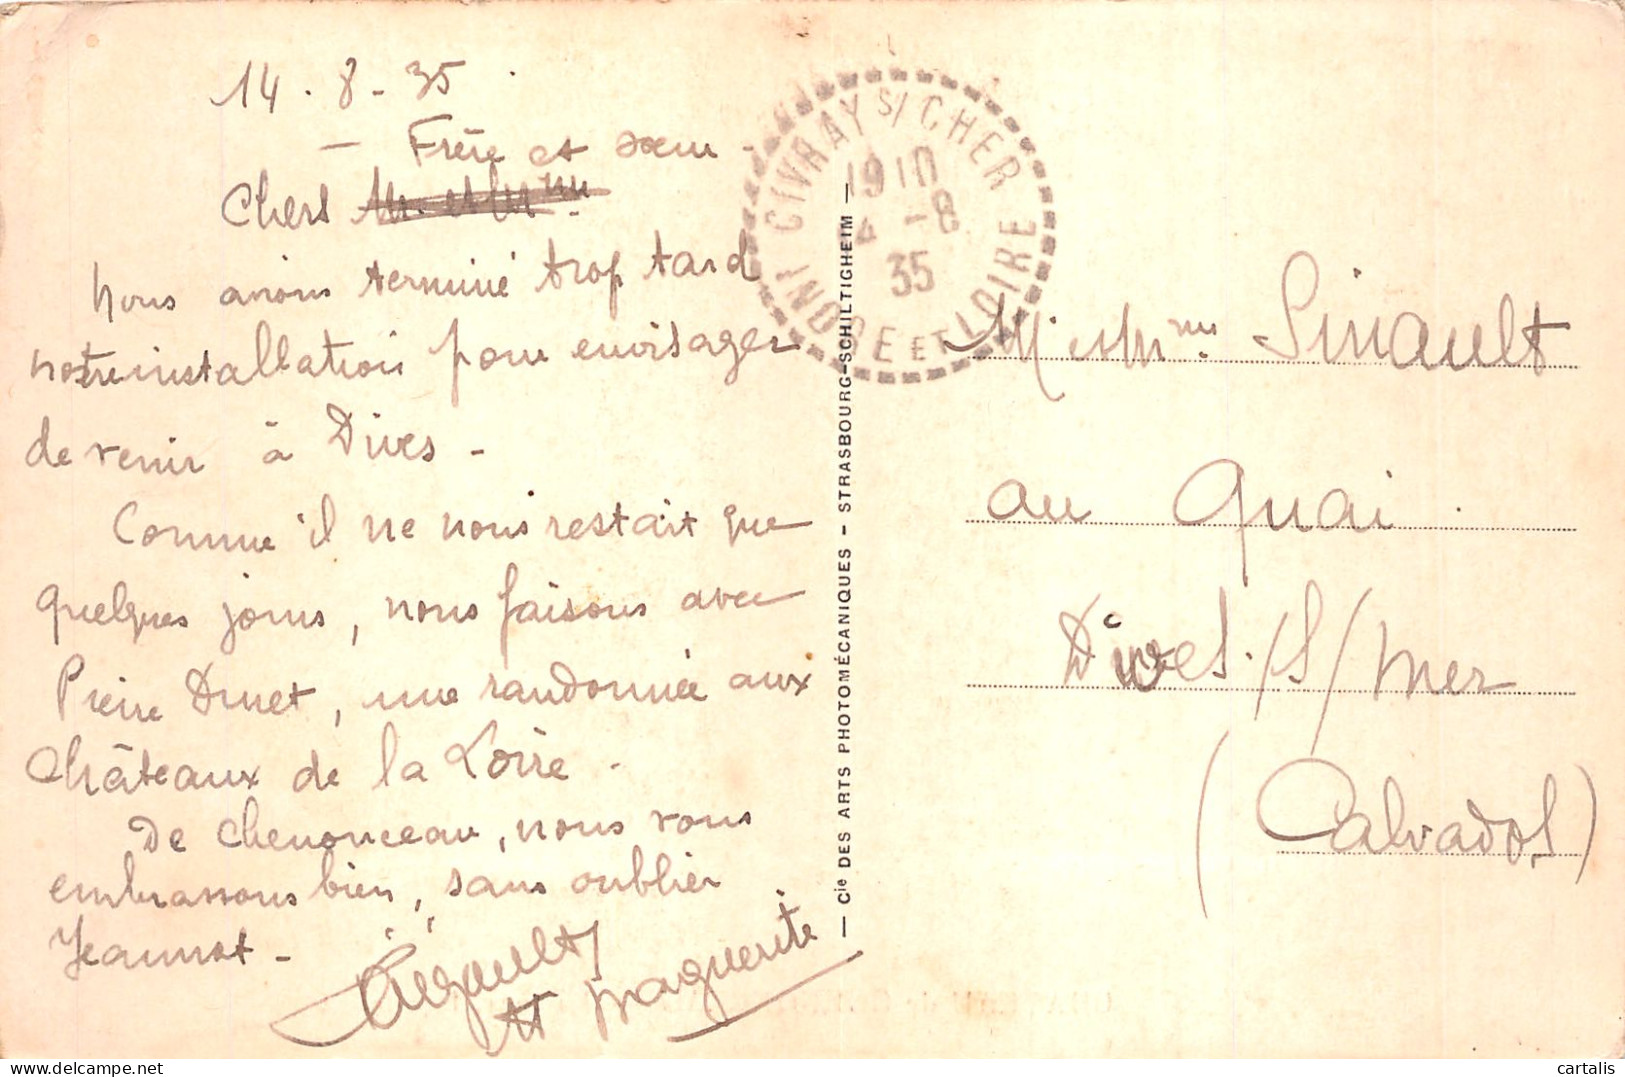 14.8-35.
- Frère et sœur -
Chers M. et Mme
Nous avions terminé trop tard
notre installation pour envisager
de venir à Dives -
Comme il ne nous restait que
quelques jours, nous faisons avec
Pierre Druet, une randonnée aux
Châteaux de la Loire.
De Chenonceau, nous vous
embrassons bien, sans oublier
Jeannot -
et Marguerite
CIVRAY S/ CHER
INDRE ET LOIRE
1910
4 -8
35
— Cie DES ARTS PHOTOMÉCANIQUES - STRASBOURG-SCHILTIGHEIM —
M. et Mme Sinault
au Quai.
Dives./S/mer
(Calvados)
cartalis